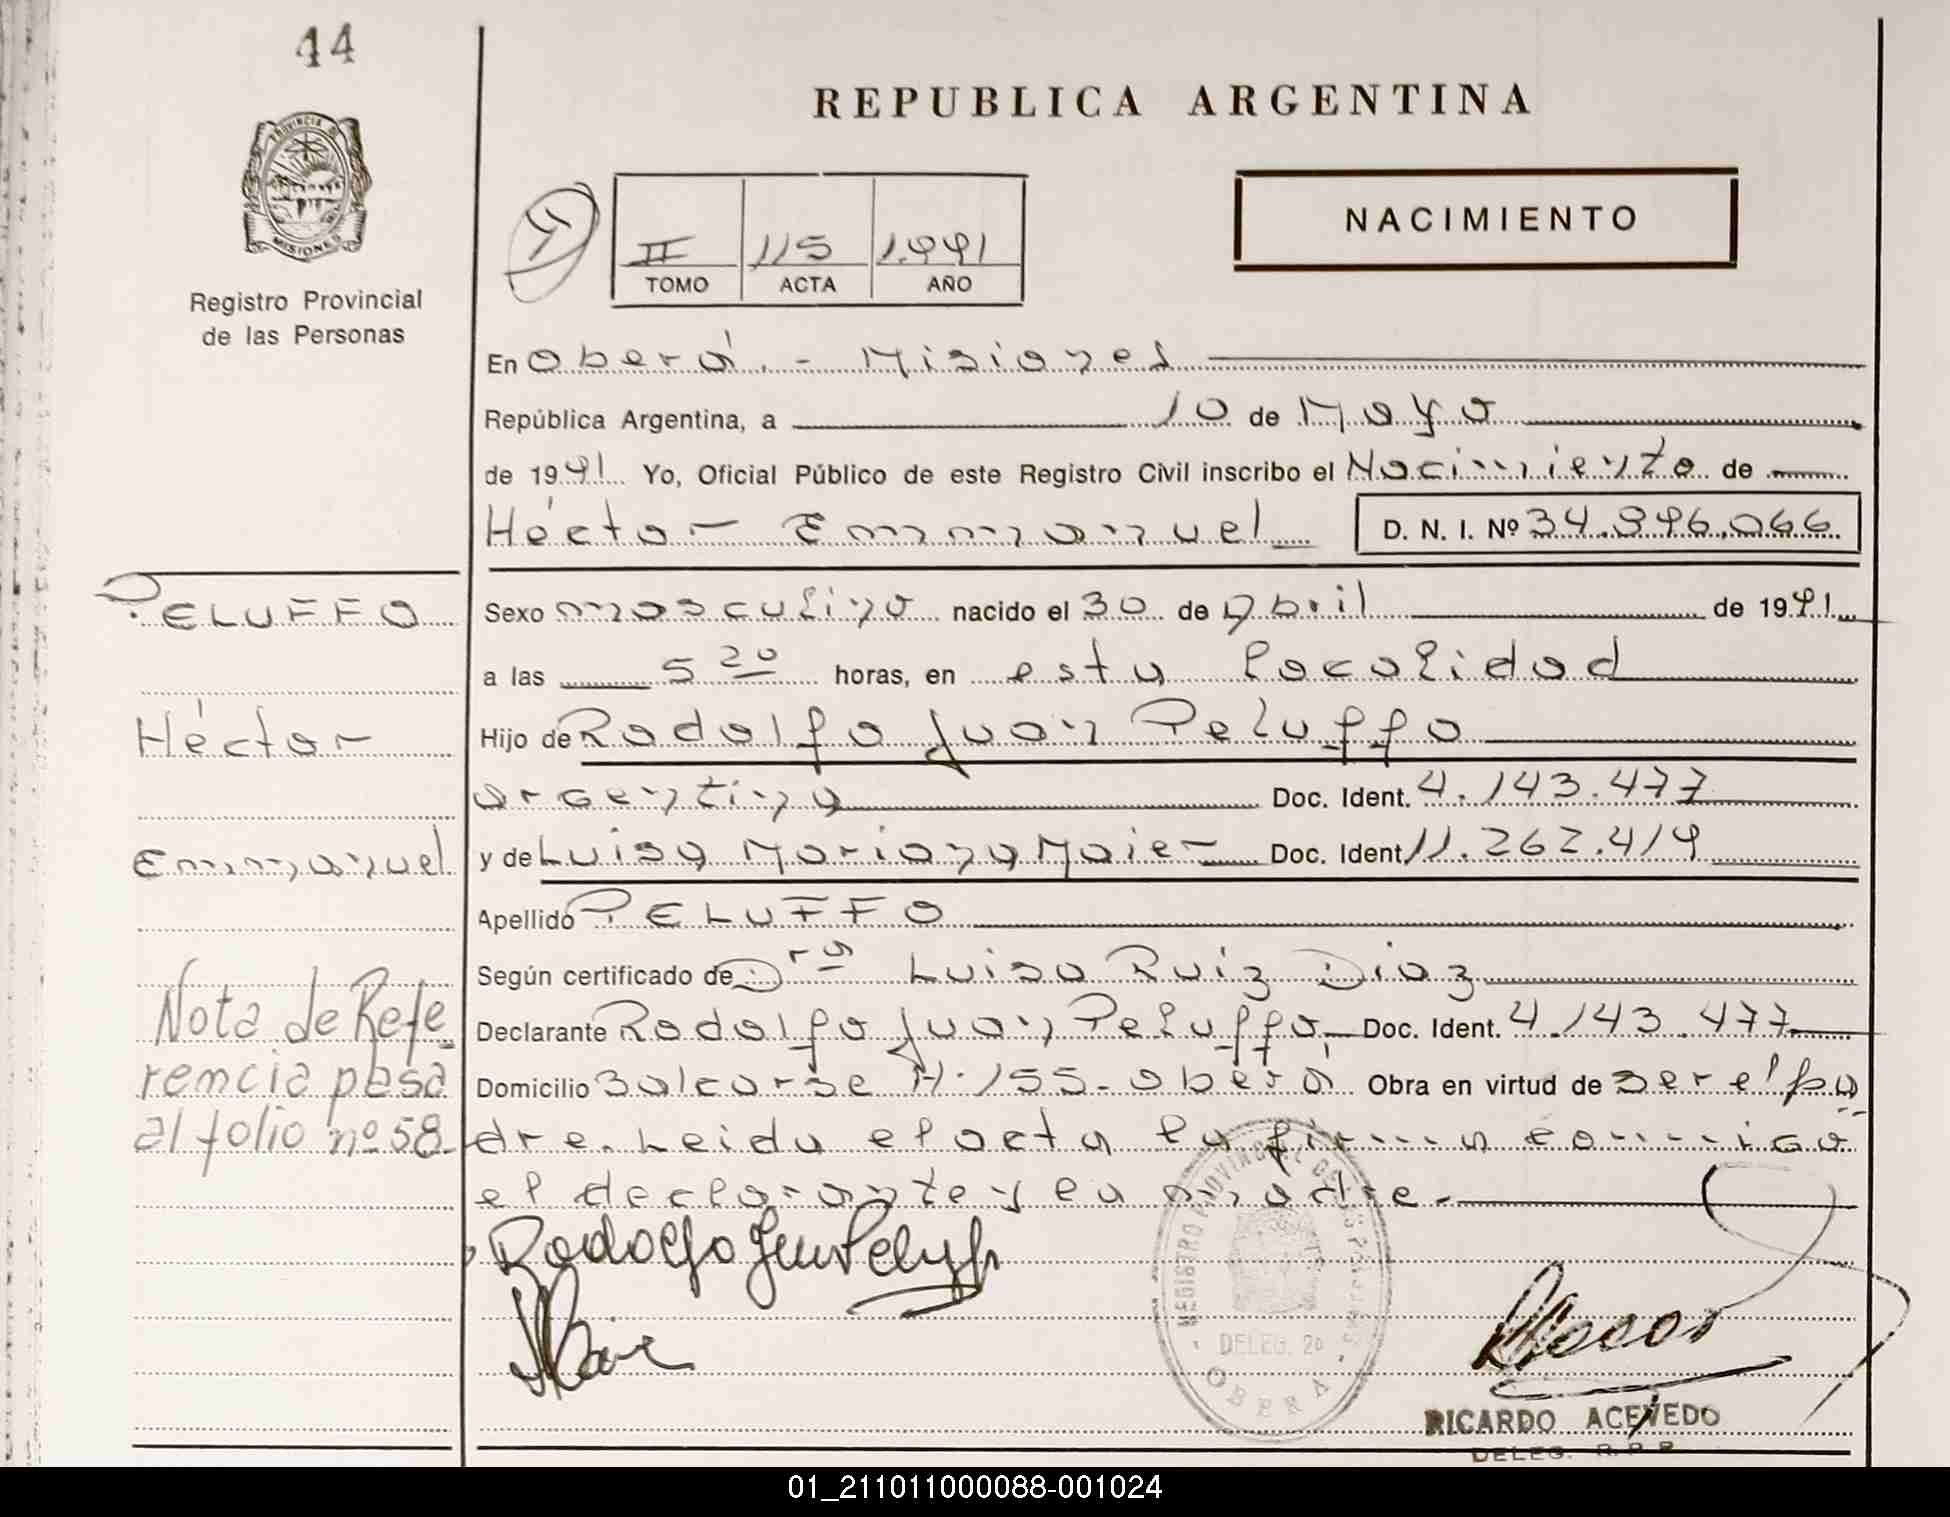 44
REPUBLICA ARGENTINA
PROVINCIA DE
MISIONES
Registro Provincial
de las Personas
II 115 1.991
TOMO ACTA AÑO
NACIMIENTO
En Oberá.- Misiones
República Argentina, a 10 de Mayo
de 1991 Yo, Oficial Público de este Registro Civil inscribo el Nacimiento de
Héctor Emmanuel D. N. I. Nº 34.896.066
PELUFFO
Sexo masculino nacido el 30 de Abril de 1991
a las 5 20 horas, en esta localidad
Héctor
Hijo de Rodolfo Juan Peluffo
argentino Doc. Ident. 4.143.477
Emmanuel
y de Luisa Mariana Maier Doc. Ident 11.262.419
Apellido PELUFFO
Según certificado de Dra Luisa Ruiz Diaz
Nota de Refe
Declarante Rodolfo Juan Peluffo Doc. Ident. 4.143.477
rencia pasa
Domicilio Balcarse H.155-Oberá Obra en virtud de ser el pa
al folio nº 58-
dre. Leida el acta la firma conmigo
el declarante y la madre.-
Rodolfo Juan Peluffo
REGISTRO PROVINCIAL DE LAS PERSONAS
DELEG. 20
OBERA
RICARDO ACEVEDO
DELEG. R.P.P.
01_211011000088-001024